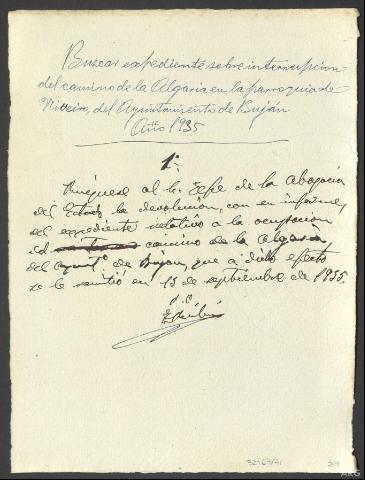 Buscar expediente sobre interrupcion
del camino de la Algaria en la parroquia de
Viveiro, del Ayuntamiento de Buján
Año 1935
1º
Ruéguese al Sr. Jefe de la Abogacía
del Estado la devolución, con su informe,
del expediente relativo a la ocupación
del camino de la Algaria
del Ayunt.º de Buján, que a dicho efecto
se le remitió en 13 de septiembre de 1935.
32763/71